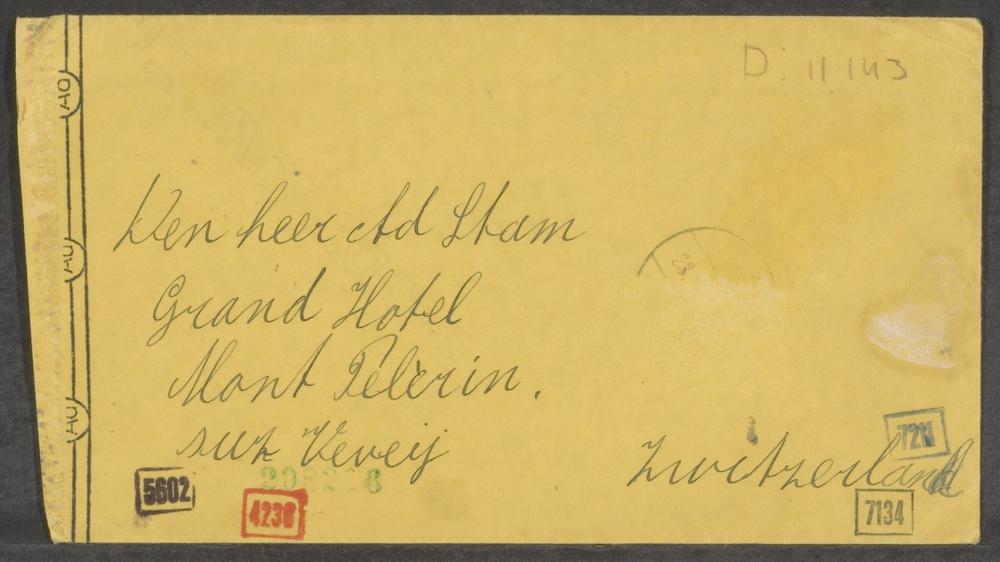 D. 11 143
Den heer Ad Stam
Grand Hotel
Mont Pelèrin.
sur Veveij
Zwitzerland
28
Au
Au
Au
5602
4238
7134